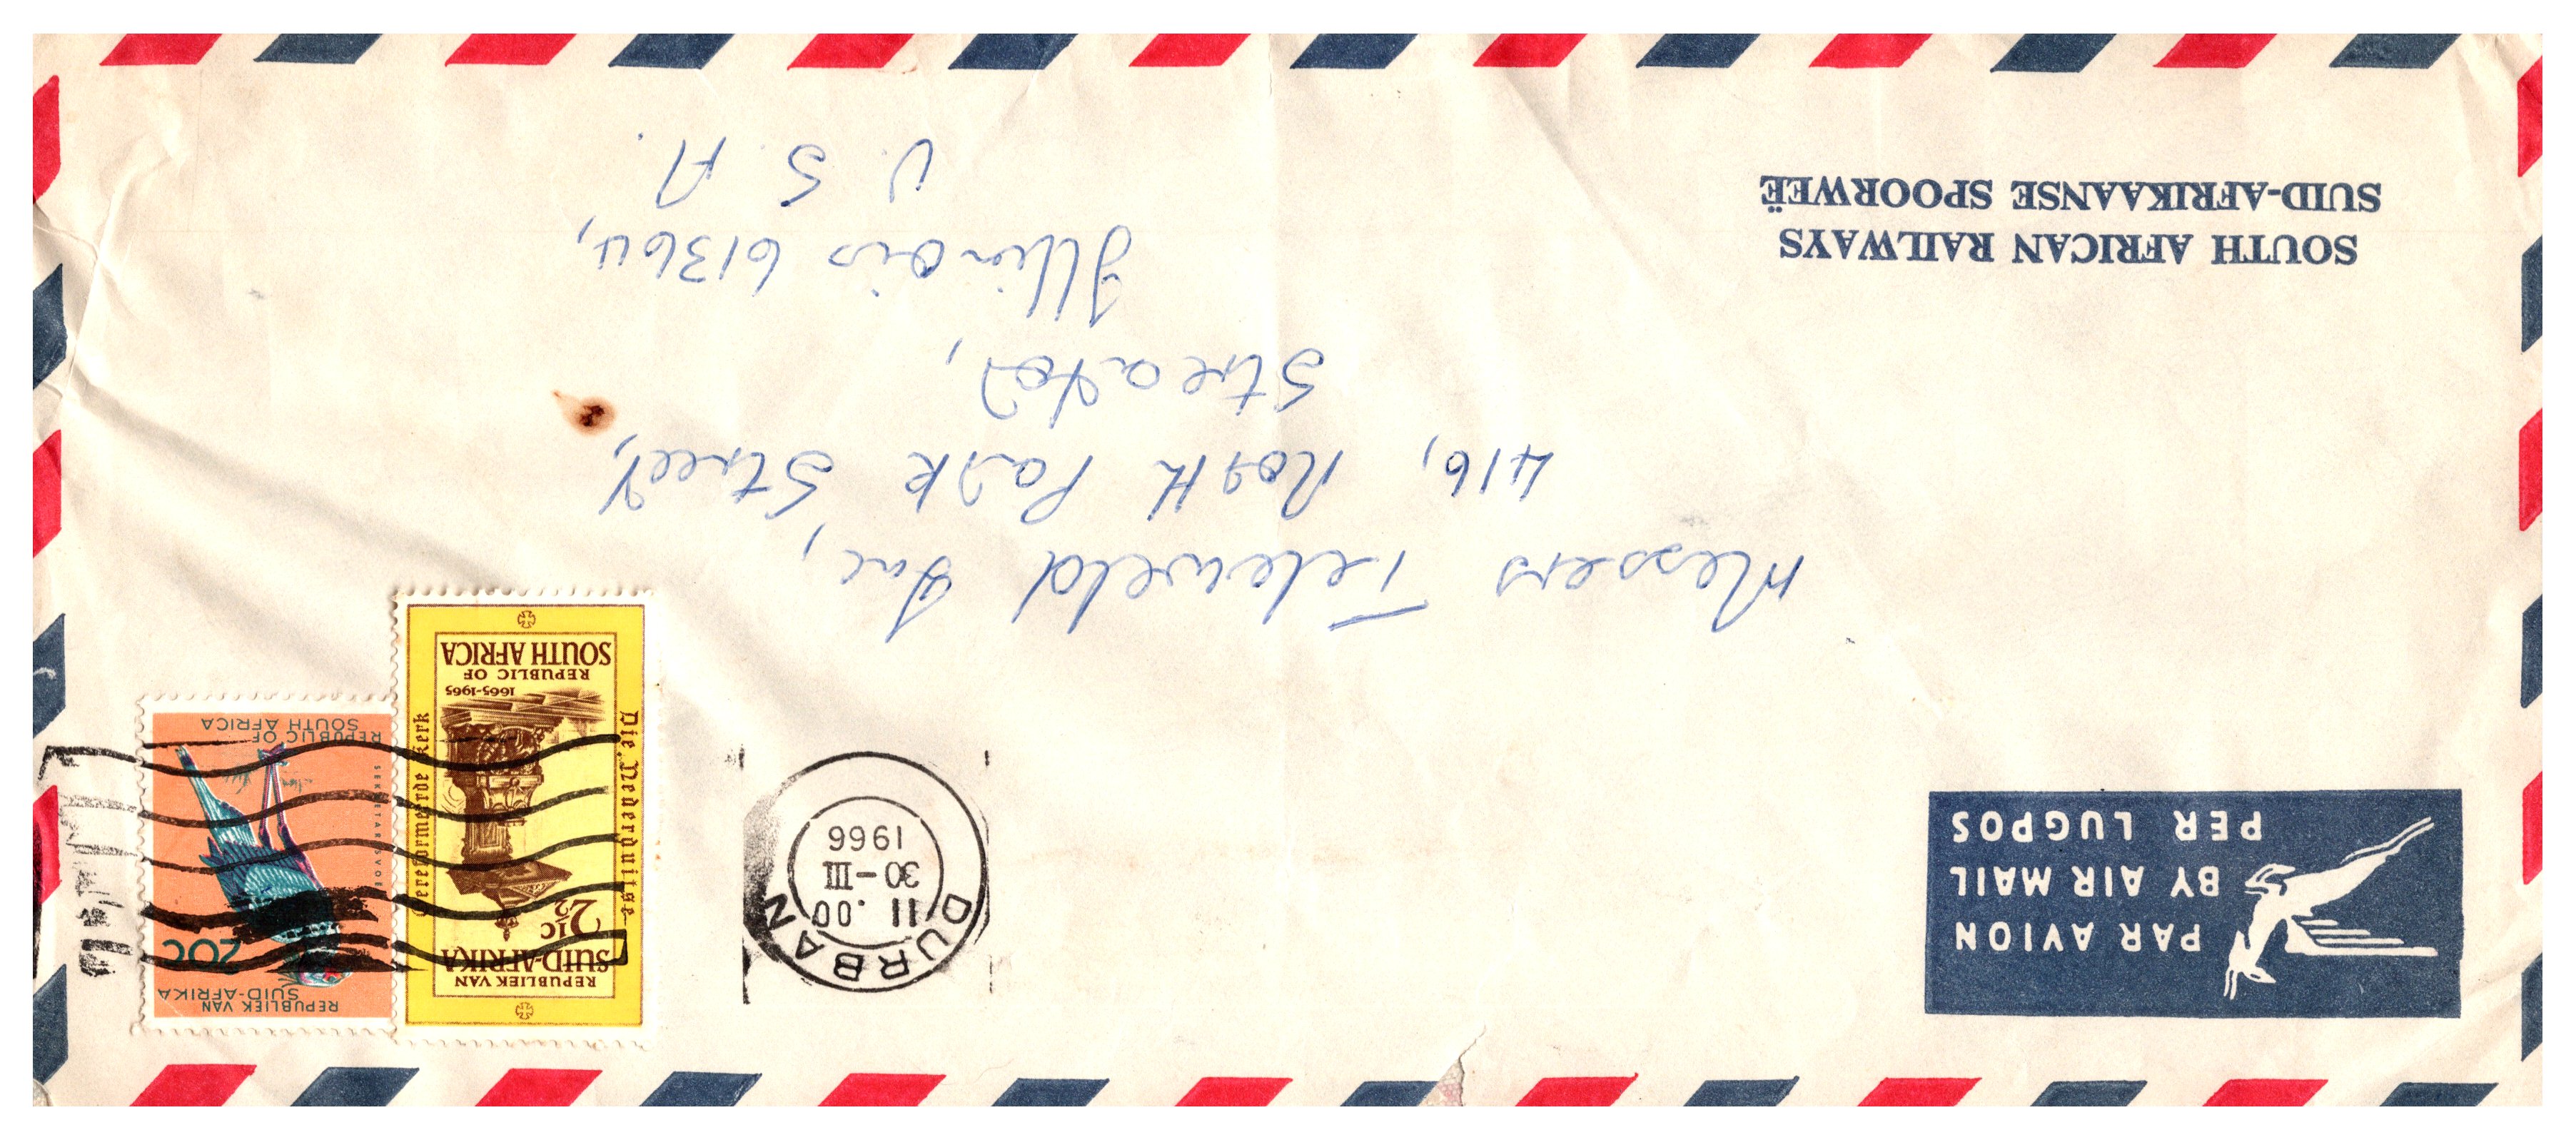 PAR AVION
BY AIR MAIL
PER LUGPOS
DURBAN
11.00
30-III
1966
REPUBLIEK VAN
SUID-AFRIKA
2½c
Die Nederduitse
Gereformeerde Kerk
1665-1965
REPUBLIC OF
SOUTH AFRICA
REPUBLIEK VAN
SUID-AFRIKA
20c
REPUBLIC OF
SOUTH AFRICA
Messers Teleweld Inc,
416, North Park Street,
Streator,
Illinois 61364,
U. S. A.
SOUTH AFRICAN RAILWAYS
SUID-AFRIKAANSE SPOORWEË